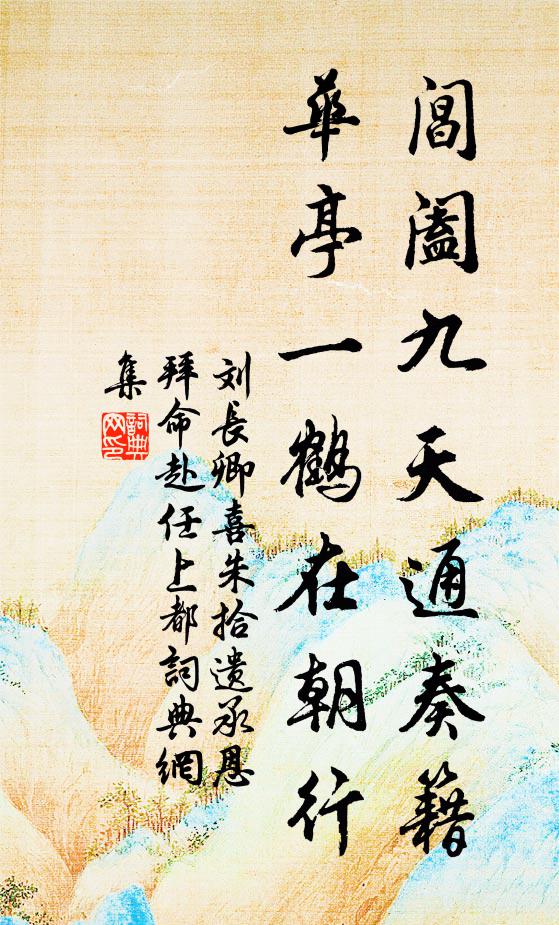 閶阖九天通奏籍
華亭一鶴在朝行
刘長卿喜朱拾遗承恩
拜命赴任上都詞典網
集
詞典
网印